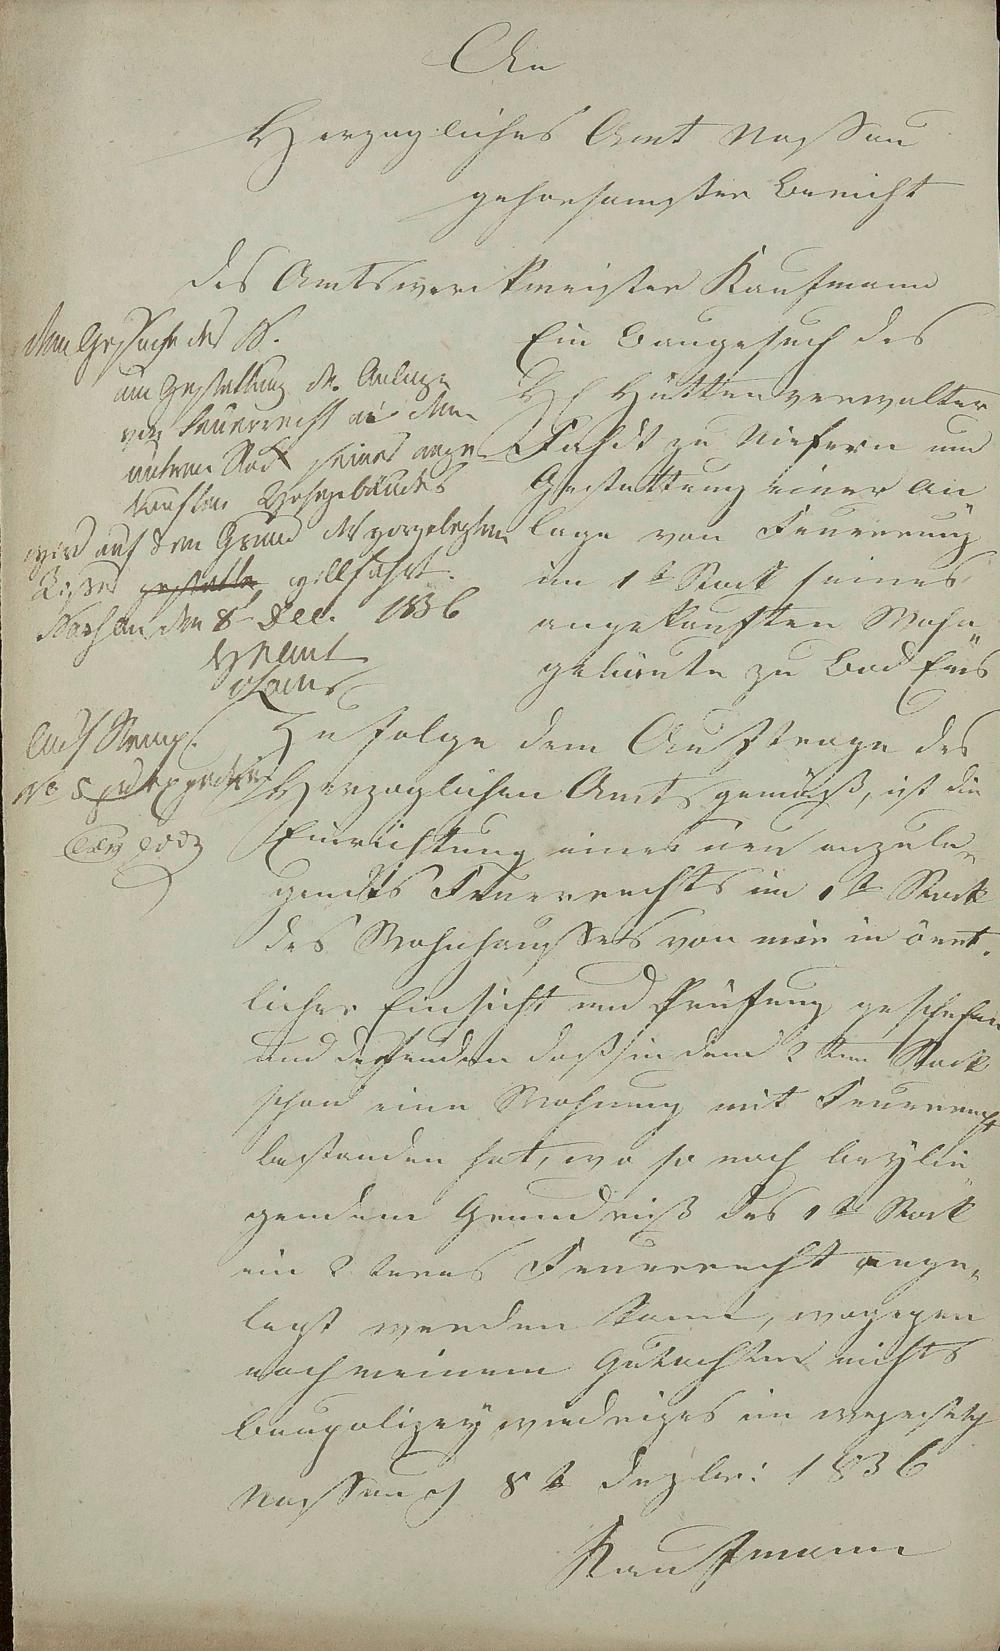 An
Herzogliches Amt Nassau
gehorsamster Bericht
des Amtswerkmeister Kaufmann
Ein Baugesuch des
H Hüttenverwalter
zu Niefern um
Gestattung einer An
lage von Feuerung
im 1t Stock seines
angekauften Wohn„
gebäute zu Bad Ems
dem Gesuche des H.
um Gestattung der Anlage
von Feuerrecht in dem
untern Stock seines ange-
kauften Wohngebäudes
wird auf den Grund des vorgelegten
Risses gestattet willfahrt.
Nassau den 8 Dec. 1836
HN Amt
Amts Stemp.
No 8
Zu folge dem Auftrage des
Herzoglichen Amts gemäß, ist die
Einrichtung eines neu anzule„
gendes Feuerrechts im 1t Stock
des Wohnhausses von mir in öert„
licher Einsicht und Prüfung geschehen
und befunden daß in dem 2ten Stock
schon eine Wohnung mit Feuerrecht
bestanden hat, wo so nach beylie„
gendem Grundriß des 1t Stock
ein 2teres Feuerrecht ange„
legt werden kann, wogegen
nach meinem Gutachten nichts
baupolizeywiedriges im
Nassau d 8t Dezbr: 1836
Kaufmann